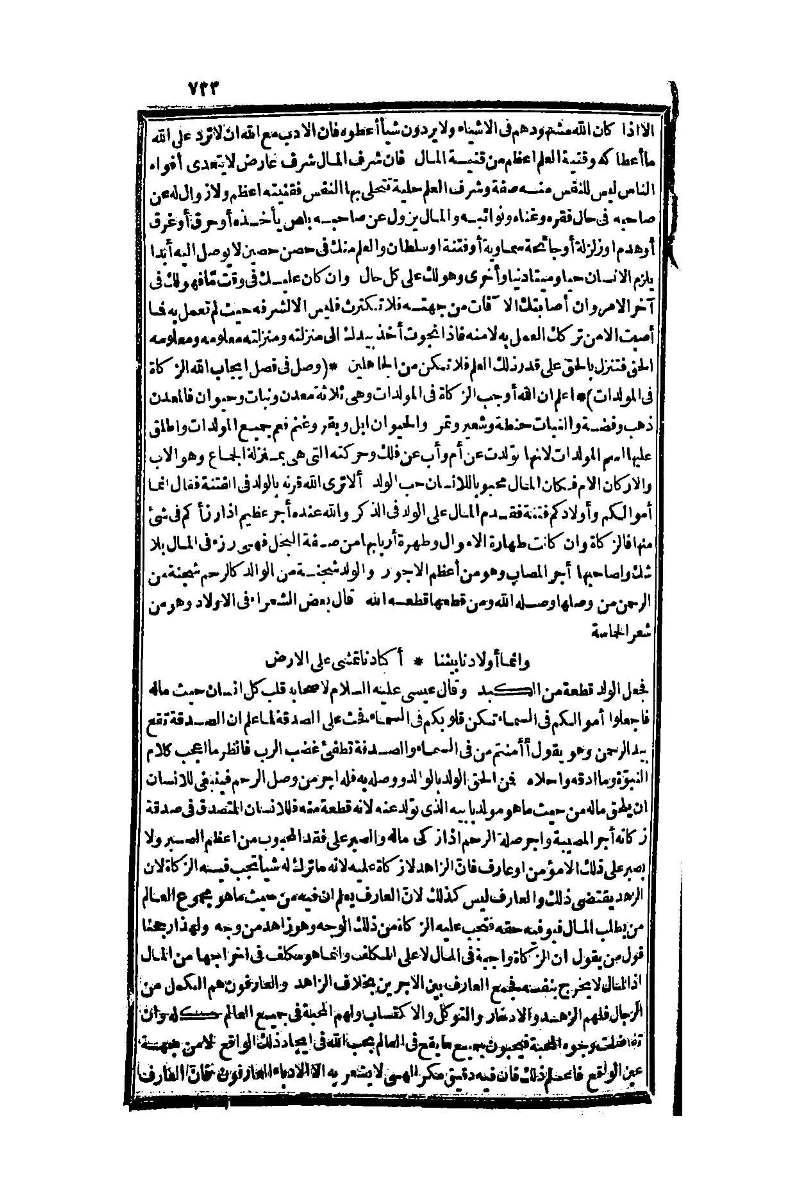 ٧٣٣
الا اذا كان الله مشهودهم فى الاشياء ولا يردون شيأ أعطوه فان الادب مع الله ان لا ترد على الله
ما أعطاكه وقنية العلم اعظم من قنية المال فان شرف المال شرف عارض لا يتعدى أفواه
الناس ليس للنفس منه صفة وشرف العلم حلية تتحلى بها النفس فقنيته اعظم ولا زوال له عن
صاحبه فى حال فقره وغناه ونوائبه والمال يزول عن صاحبه بلص يأخذه أو حرق أو غرق
أو هدم او زلزلة أو جائحة سماوية أو فتنة او سلطان والعلم منك فى حصن حصين لا يوصل اليه أبدا
يلزم الانسان حيا وميتا دنيا وأخرى وهو لك على كل حال وان كان عليك فى وقت مّا فهو لك فى
آخر الامر وان أصابتك الآفات من جهته فلا تكترث فليس الا لشرفه حيث لم تعمل به فما
أصبت الا من تركك العمل به لا منه فاذا نجوت أخذ بيدك الى منزلته ومنزلته معلومه ومعلومه
الحق فتنزل بالحق على قدر ذلك العلم فلا تكن من الجاهلين *(وصل فى فصل ايجاب الله الزكاة
فى المولدات)* اعلم ان الله أوجب الزكاة فى المولدات وهى ثلاثة معدن ونبات وحيوان فالمعدن
ذهب وفضة والنبات حنطة وشعير وتمر والحيوان ابل وبقر وغنم فعم جميع المولدات واطلق
عليها اسم المولدات لانها تولدت عن أم وأب عن فلك وحركته التى هى بمنزلة الجماع وهو الاب
والاركان الام فكان المال محبوبا للانسان حب الولد ألا ترى الله قرنه بالولد فى الفتنة فقال انما
أموالكم وأولادكم فتنة فقدم المال على الولد فى الذكر والله عنده أجر عظيم اذا رزأكم فى شئ
منها فالزكاة وان كانت طهارة الاموال وطهرة أربابها من صفة البخل فهى رزء فى المال بلا
شك ولصاحبها أجر المصاب وهو من أعظم الاجور والولد شجنة من الوالد كالرحم شجنة من
الرحمن من وصلها وصله الله ومن قطعها قطعه الله قال بعض الشعراء فى الاولاد وهو من
شعر الحماسة
وانما أولادنا بيننا * أكبادنا تمشى على الارض
فجعل الولد قطعة من الكبد وقال عيسى عليه السلام لاصحابه قلب كل انسان حيث ماله
فاجعلوا أموالكم فى السماء تكن قلوبكم فى السماء فحث على الصدقة لما علم ان الصدقة تقع
بيد الرحمن وهو يقول أأمنتم من فى السماء والصدقة تطفئ غضب الرب فانظر ما اعجب كلام
النبوّة وما ادقه واحلاه فمن الحق الولد بالوالد ووصله به فله اجر من وصل الرحم فينبغى للانسان
ان يلحق ماله من حيث ما هو مولد بابيه الذى تولد عنه لانه قطعة منه فللانسان المتصدق فى صدقة
زكاته أجر المصيبة واجر صلة الرحم اذا زكى ماله والصبر على فقد المحبوب من اعظم الصبر ولا
يصبر على ذلك الا مؤمن او عارف فانّ الزاهد لا زكاة عليه لانه ما ترك له شيأ تجب فيه الزكاة لان
الزهد يقتضى ذلك والعارف ليس كذلك لانّ العارف يعلم ان فيه من حيث ما هو مجموع العالم
من يطلب المال فيوفيه حقه فتجب عليه الزكاة من ذلك الوجه وهو زاهد من وجه ولهذا رجحنا
قول من يقول ان الزكاة واجبة فى المال لا على المكلف وانما هو مكلف فى اخراجها من المال
اذ المال لا يخرج بنفسه فجمع العارف بين الاجرين بخلاف الزاهد والعارفون هم الكمل من
الرجال فلهم الزهد والادخار والتوكل والاكتساب ولهم المحبة فى جميع العالم كله وان
تفاضلت وجوه المحبة فيحبون جميع ما يقع فى العالم بحب الله فى ايجاد ذلك الواقع لا من جهة
عين الواقع فاعلم ذلك فان فيه دقيق مكر الهى لا يشعر به الا الادباء العارفون فانّ العارف